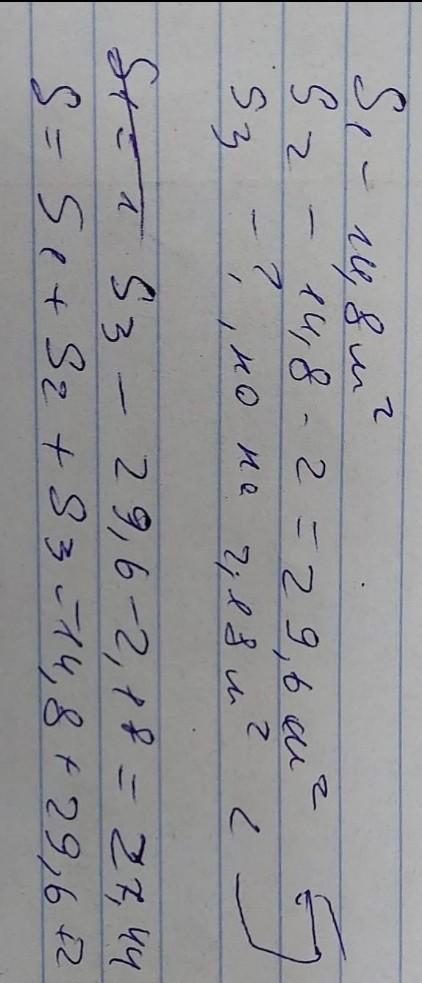 S₁ - 14,8 м²
S2 - 14,8 · 2 = 29,6 м²
S3 - ?, но на 2,18 м² <
S3 - 29,6 - 2,18 = 27,44
S = S₁ + S2 + S3 = 14,8 + 29,6 + 2